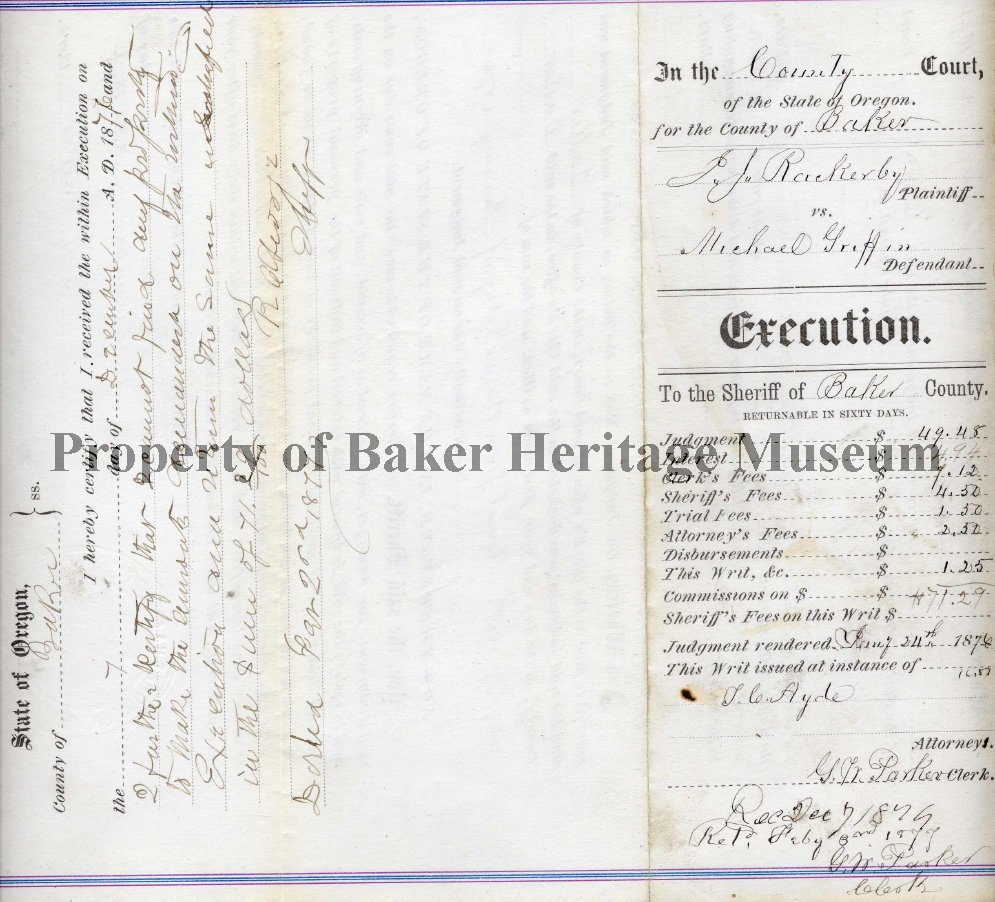 State of Oregon,
County of Baker } ss.
I hereby certify that I received the within Execution on
the 7 day of December A. D. 1876 and
I further certify that I cannot find any property
to make the amount demanded on the within
Execution and return the same unsatisfied
in the Sum of 71. dollars
1877
Sheriff
In the County Court,
of the State of Oregon.
for the County of Baker
Rackerby
Plaintiff
vs.
Michael Griffin
Defendant
Execution.
To the Sheriff of Baker County.
RETURNABLE IN SIXTY DAYS.
Judgment $ 49.48
Interest
Clerk's Fees $ 9.12
Sheriff's Fees $ 4.50
Trial Fees $ 1.50
Attorney's Fees $ 2.50
Disbursements $
This Writ, &c. $ 1.25
Commissions on $ $ 71.29
Sheriff's Fees on this Writ $
Judgment rendered Jany 24th 1876
This Writ issued at instance of
Hyde
Attorneys.
G. W. Parker Clerk.
Rec Dec 7 1876
Retd. Feby 3rd 1877
G. W. Parker
Clerk
Property of Baker Heritage Museum